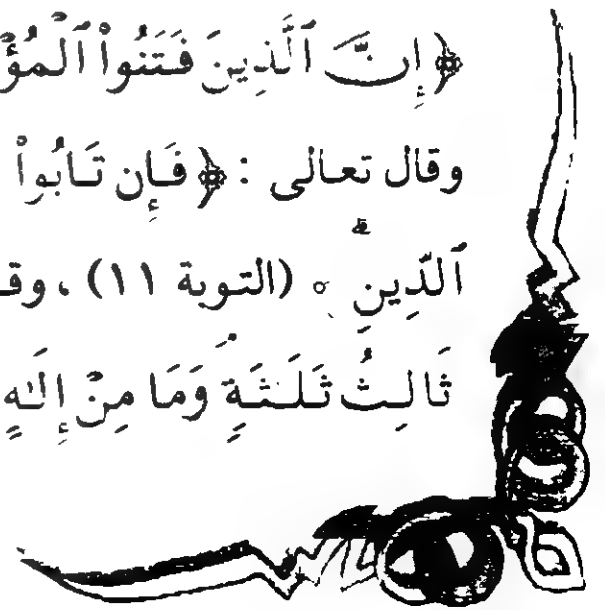 ﴿ إِنَّ ٱلَّذِينَ فَتَنُوا۟ ٱلْمُؤْ
وقال تعالى : ﴿ فَإِن تَابُوا۟
ٱلدِّينِ ۗ ﴾ (التوبة ١١) ، وقـ
ثَالِثُ ثَلَـٰثَةٍۘ وَمَا مِنْ إِلَـٰهٍ